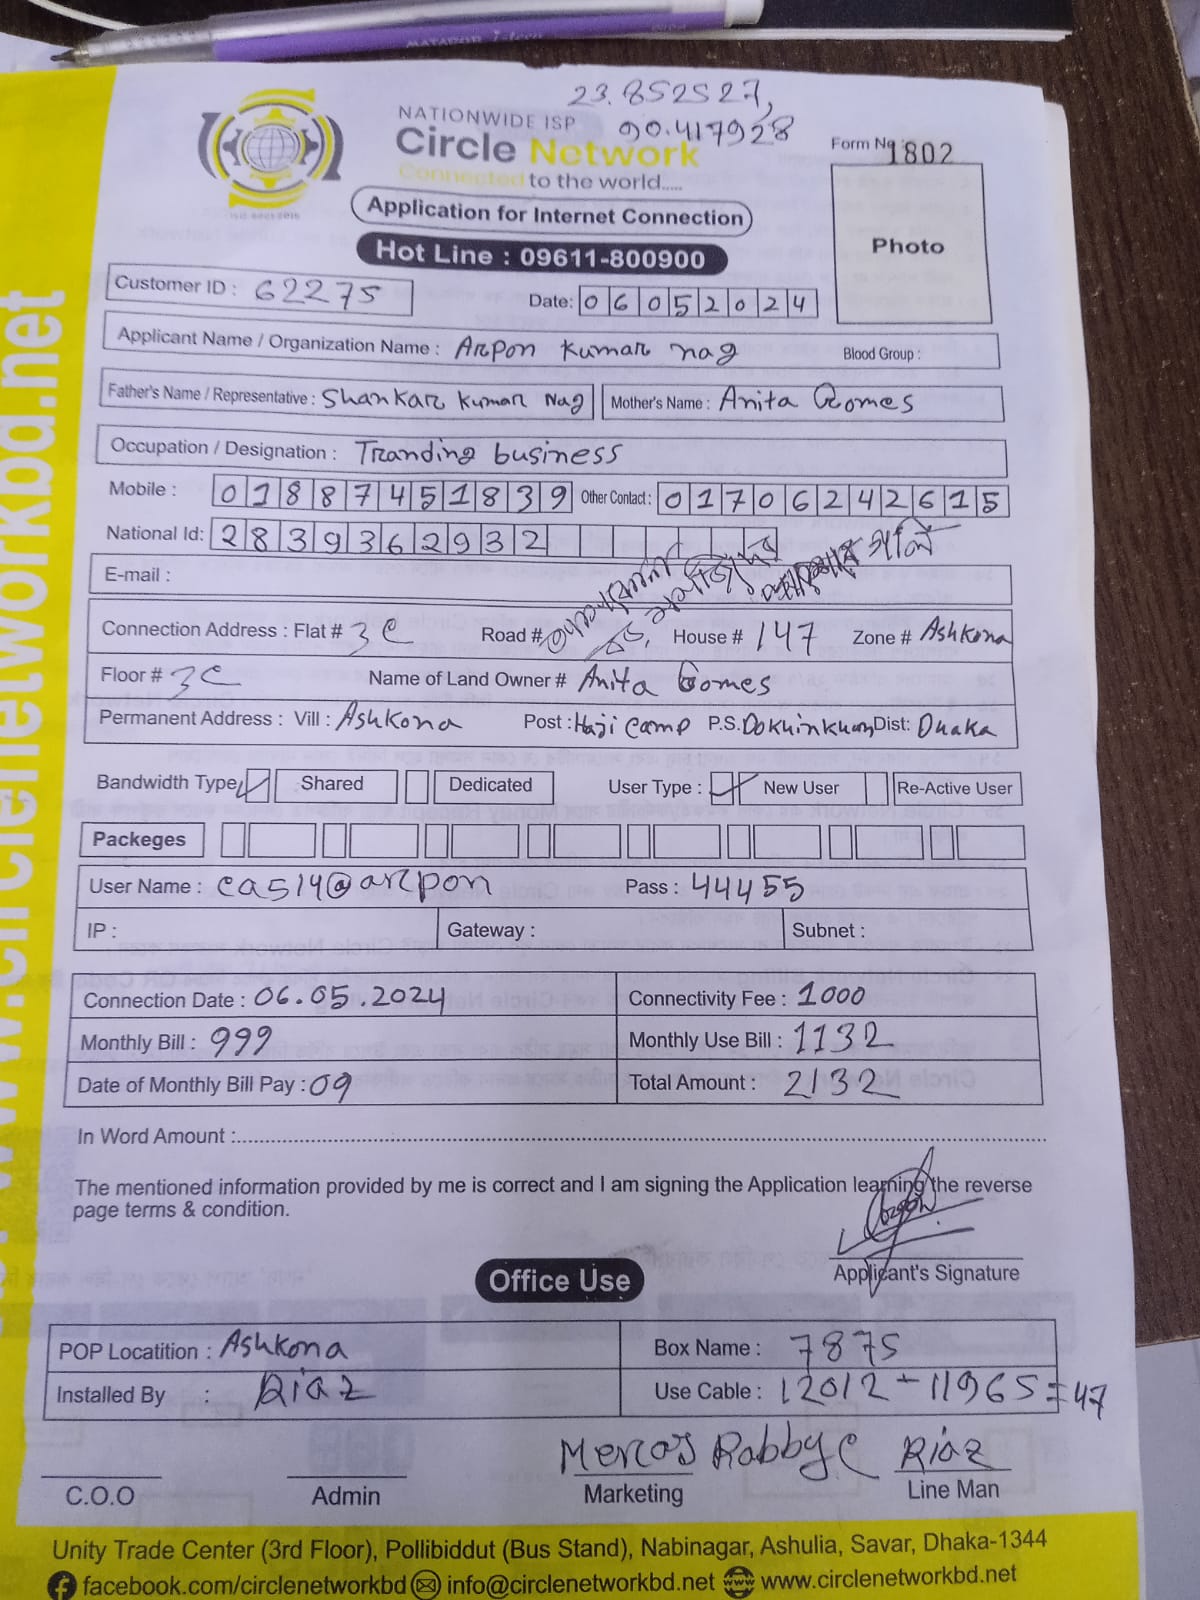 MATADOR I-teen
23.852527,
90.417928
NATIONWIDE ISP
Circle Network
Connected to the world.....
Form No 1802
Application for Internet Connection
Photo
Hot Line : 09611-800900
Customer ID : 62275
Date: 06052024
Applicant Name / Organization Name : Arpon Kumar nag Blood Group :
Father's Name / Representative : Shankar Kumar Nag Mother's Name : Anita Gomes
Occupation / Designation : Tranding business
Mobile : 01887451839 Other Contact : 01706242615
National Id: 2839362932
E-mail :
Connection Address : Flat # 3C Road # House # 147 Zone # Ashkona
Floor # 3C Name of Land Owner # Anita Gomes
Permanent Address : Vill : Ashkona Post : Haji Camp P.S. Dokhinkhan Dist: Dhaka
Bandwidth Type Shared Dedicated User Type : New User Re-Active User
Packeges
User Name : ca514@arpon Pass : 44455
IP : Gateway : Subnet :
Connection Date : 06.05.2024 Connectivity Fee : 1000
Monthly Bill : 999 Monthly Use Bill : 1132
Date of Monthly Bill Pay : 09 Total Amount : 2132
In Word Amount :
The mentioned information provided by me is correct and I am signing the Application learning the reverse
page terms & condition.
Applicant's Signature
Office Use
POP Locatition : Ashkona Box Name : 7875
Installed By : Riaz Use Cable : 12012-11965=47
Mercas Rabbye Riaz
C.O.O Admin Marketing Line Man
Unity Trade Center (3rd Floor), Pollibiddut (Bus Stand), Nabinagar, Ashulia, Savar, Dhaka-1344
facebook.com/circlenetworkbd info@circlenetworkbd.net www.circlenetworkbd.net
www.circlenetworkbd.net